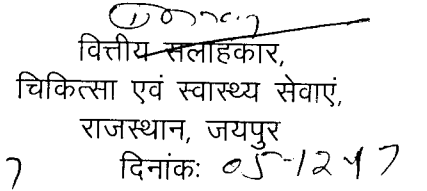 वित्तीय सलाहकार,
चिकित्सा एवं स्वास्थ्य सेवाएं,
राजस्थान, जयपुर
दिनांकः 05-12